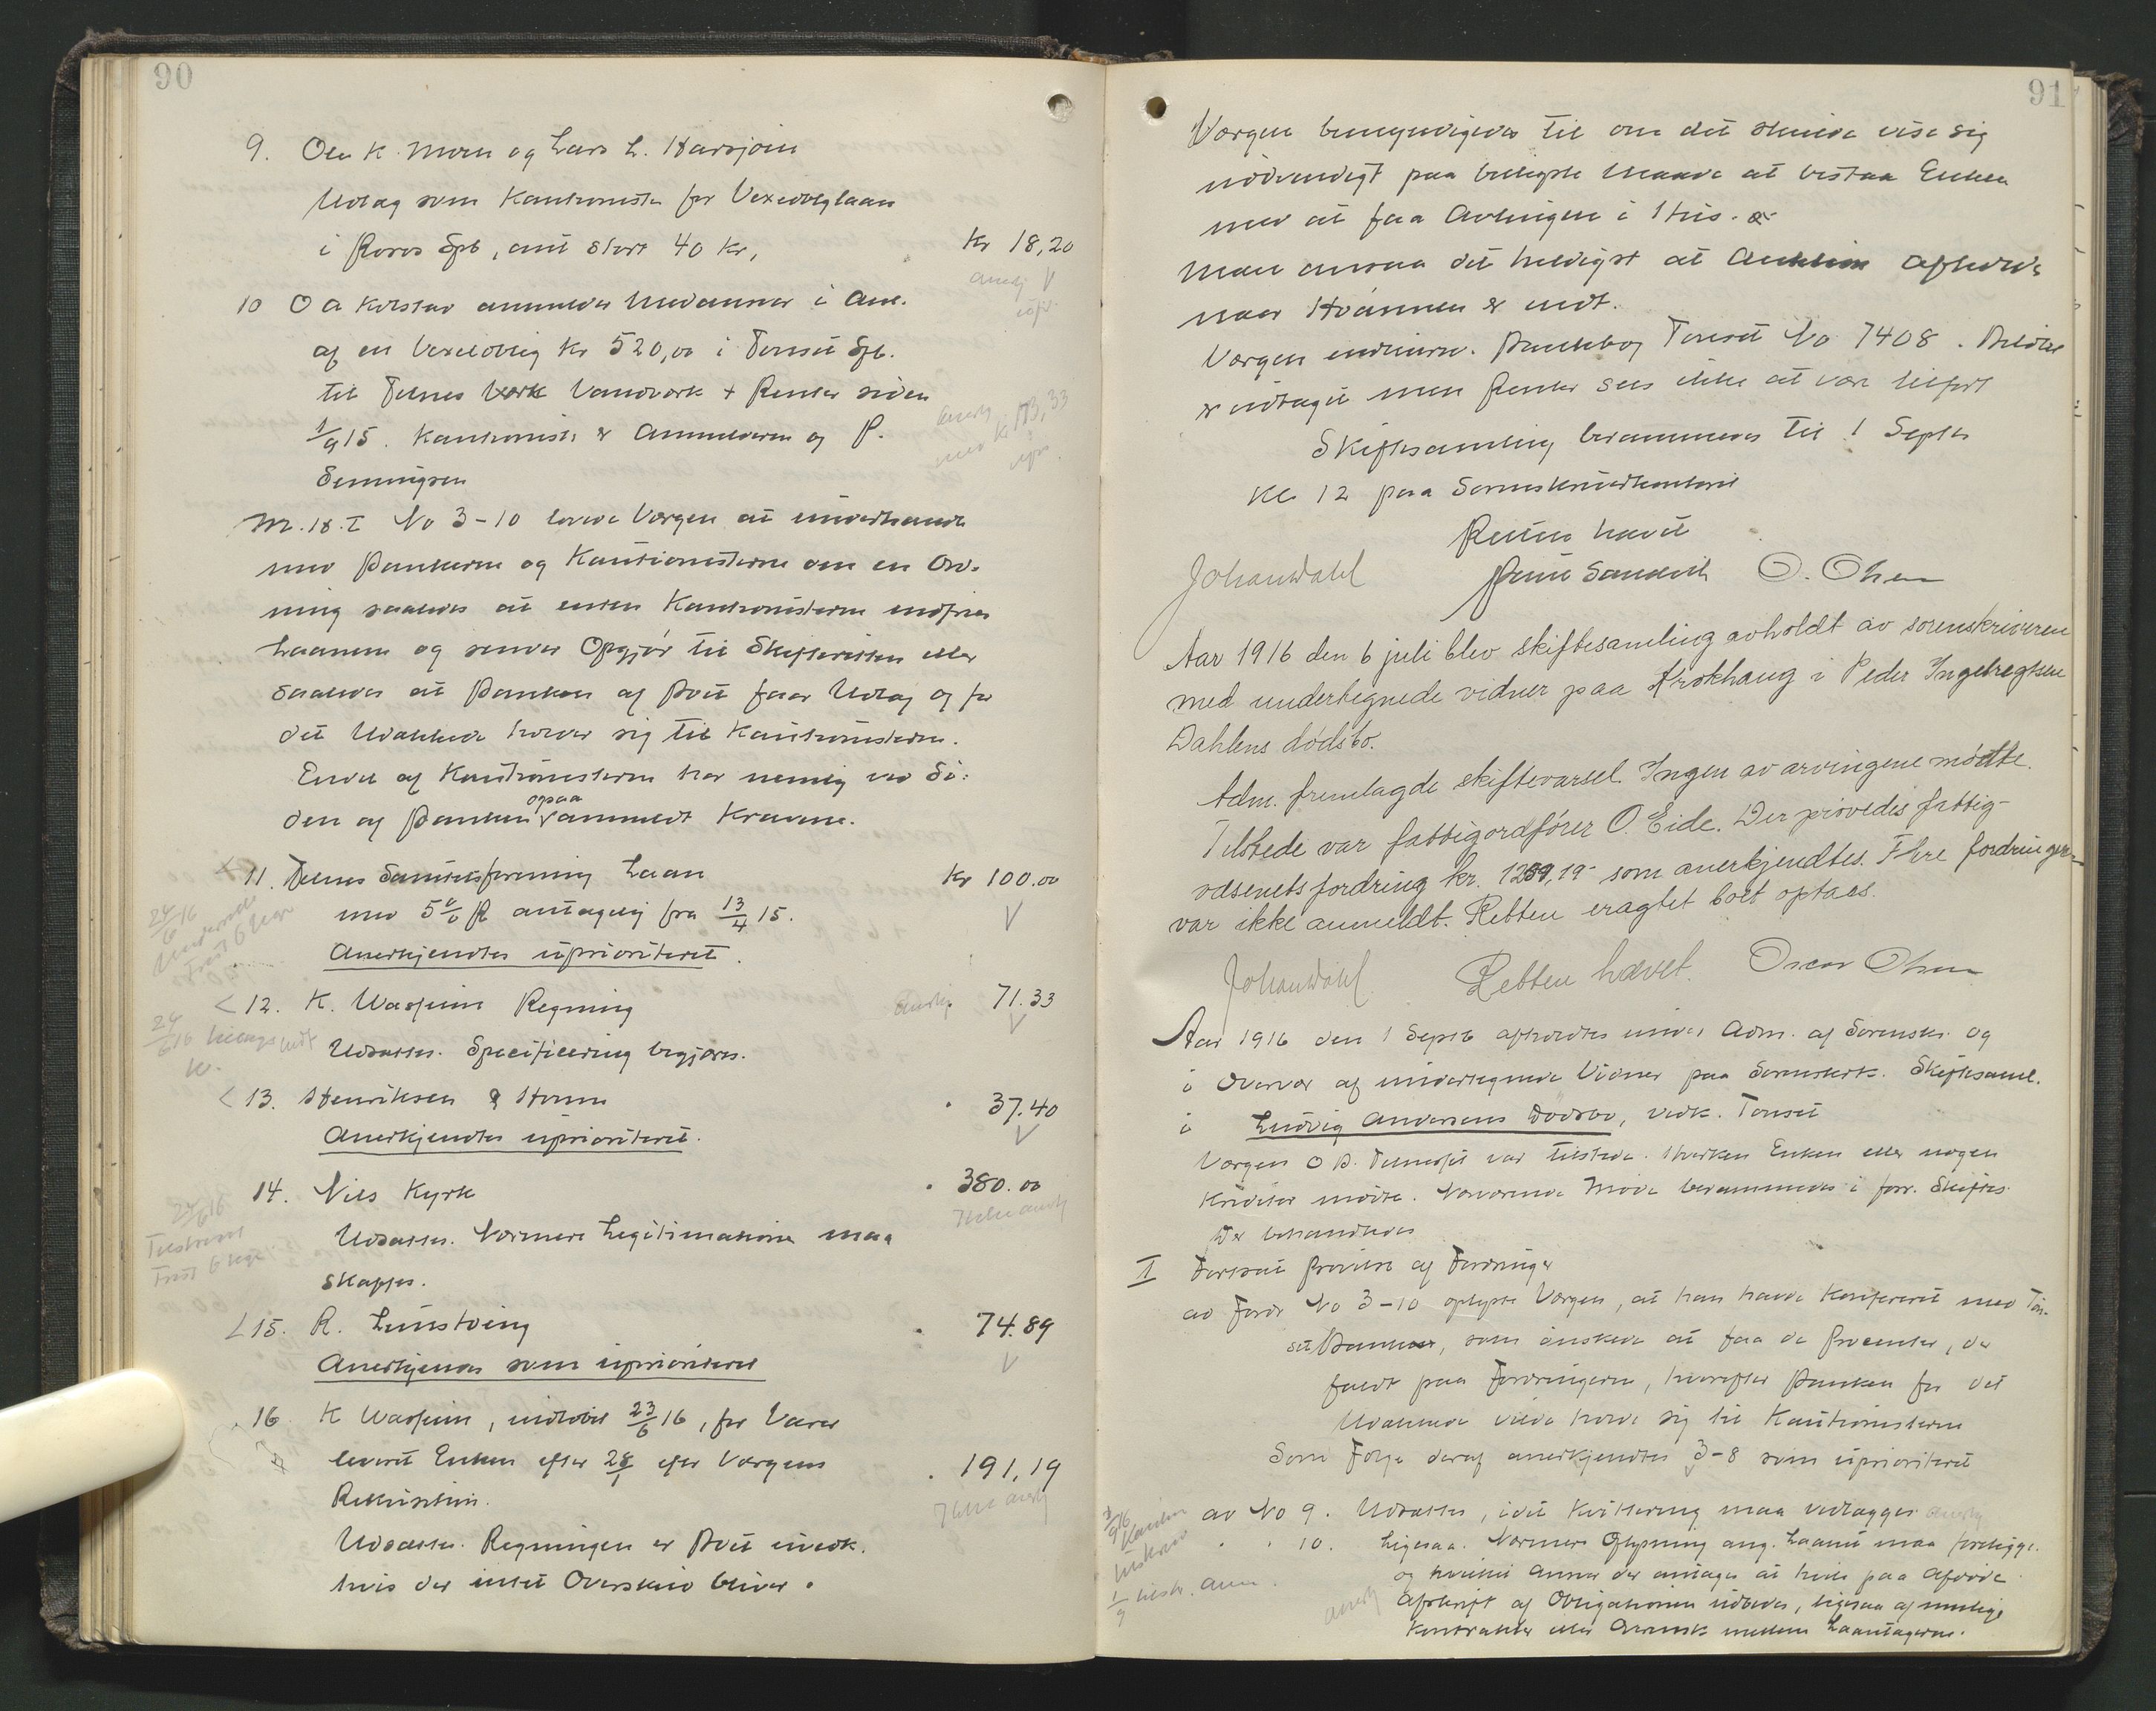 90
9. Ole K. Moen og Lars L. Harsjøen
Udlag som Kautionister for Vexelobglaan
i Røros Spb, ant stort 40 Kr, Kr 18,20
10 O A Kolstad anmelder Medansvar i Anl.
af en Vexeloblig Kr 520,00 i Tønset Spb.
til Tolnes Værk Vandværk + Renter siden
1/9 15. Kautionister er Anmelderen og P.
Semmingsen
M. H. T. No 3-10 lovede Værgen at underhandle
med Bankerne og Kautionisterne om en Ord-
ning saaledes at enten Kautionisterne indfrier
Laanene og sender Opgjør til Skifteretten eller
saaledes at Banken af Boet faar Udlæg og for
det Udækkede holder sig til Kautionisterne.
Endel af Kautionisterne har nemlig ved Si-
den af Banken opaa anmeldt Kravene.
11. Tolnes Samlagsforening Laan Kr 100.00
med 5% R antagelig fra 13/4 15.
Anerkjendtes uprioriteret.
12. K. Waspeim Regning 71.33
Udsattes. Specificering begjæres.
13. Henriksen & Horum 37.40
Anerkjendtes uprioriteret.
14. Nils Kyrk 380.00
Udsattes. Nærmere Legitimation maa
skaffes.
15. R. Lunstveig 74.89
Anerkjendes som uprioriteret
16 K Waspeim, indlobet 23/6 16, for Varer
leveret Enken efter 28/1 efter Værgens
Rekvisition. 191,19
Udsattes. Regningen er Boet uvedk.
hvis der intet Overskud bliver.
91
Værgen bemyndigedes til om det skulde vise sig
nødvendigt paa billigste Maade at bistaa Enken
med at faa Avlingen i Hus.
Man ansaa det heldigst at Auktion afholdes
naar Haannen er endt.
Værgen indleverede. Bankbog Tønset No 7408. Beløbet
er udtaget men Renter sees ikke at være tilført
Skiftesamling berammedes til 1 Septbr
Kl 12 paa Sorenskriverkontoret
Retten hævet
Johan Dahl O. Olsen
Aar 1916 den 6 juli blev skiftesamling avholdt av sorenskriveren
med undertegnede vidner paa Krokhaug i Peder Ingebregtsen
Dahlens dødsbo.
Adm. fremlagde skiftevarsel. Ingen av arvingene mødte.
Tilstede var fattigordfører O. Eide. Der prøvedes fattig-
væsenets fordring kr. 1259,19 som anerkjendtes. Flere fordringer
var ikke anmeldt. Retten eragtet boet optaes.
Johan Dahl Retten hævet. Oscar Olsen
Aar 1916 den 1 Septb afholdtes under Adm. af Sorenskr. og
i Overvær af undertegnede Vidner paa Sorenskrk. Skiftesaml.
i Ludvig Andersens Dødsbo, vedk. Tønset
Værgen O B. Tolnesset var tilstede. Hverken Enken eller nogen
Kreditor mødte. Nærværende Møde berammedes i forr. Skiftes.
Der behandledes
I Fortsat Prøvelse af Fordringer
ad Fordr No 3-10 oplyste Værgen, at han havde Konfereret med Tøn-
set Banken, som ønskede at faa de Procenter, der
faldt paa Fordringerne, hvorefter Banken for det
Udækkede vilde holde sig til Kautionisterne
Som Følge deraf anerkjendtes 3-8 som uprioriteret
ad No 9. Udsattes, idet Kvittering maa vedlægges
" " 10. Ligesaa. Nærmere Oplysning ang. Laanet maa foreligge.
og hvilket Ansvar der antages at hvile paa Afdøde
Afskrift af Obligationen udbedes, ligesaa af mulige
Kontrakter eller Overensk mellem Laantagerne.